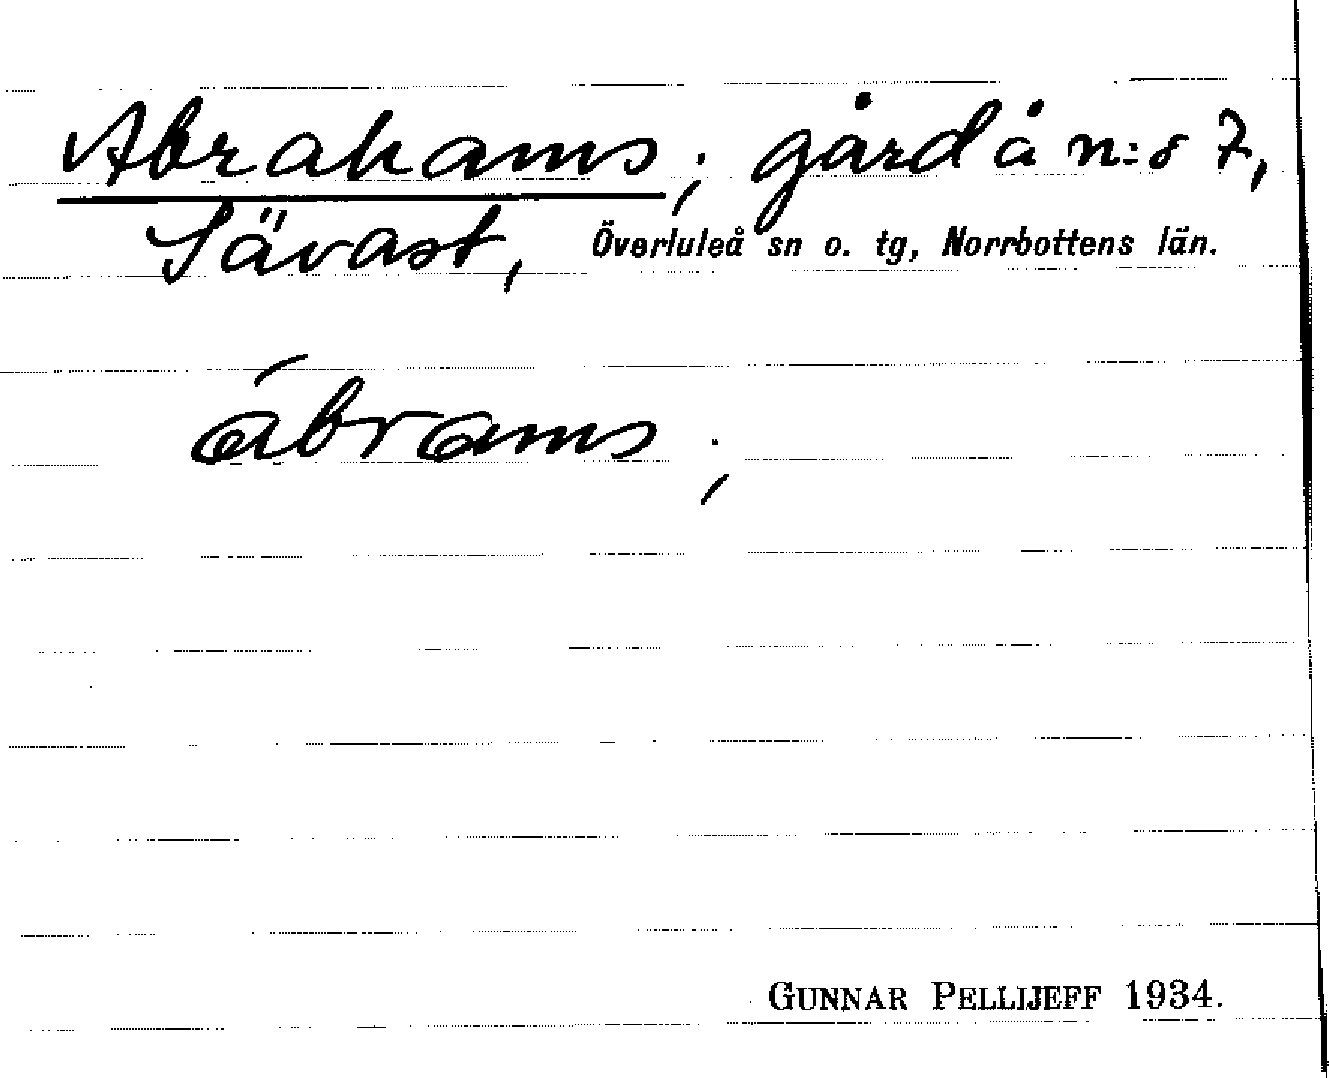 Abrahams; gård å n:o 7,
Sävast, Överluleå sn o. tg, Norrbottens län.
ábrams ;
GUNNAR PELLIJEFF 1934.